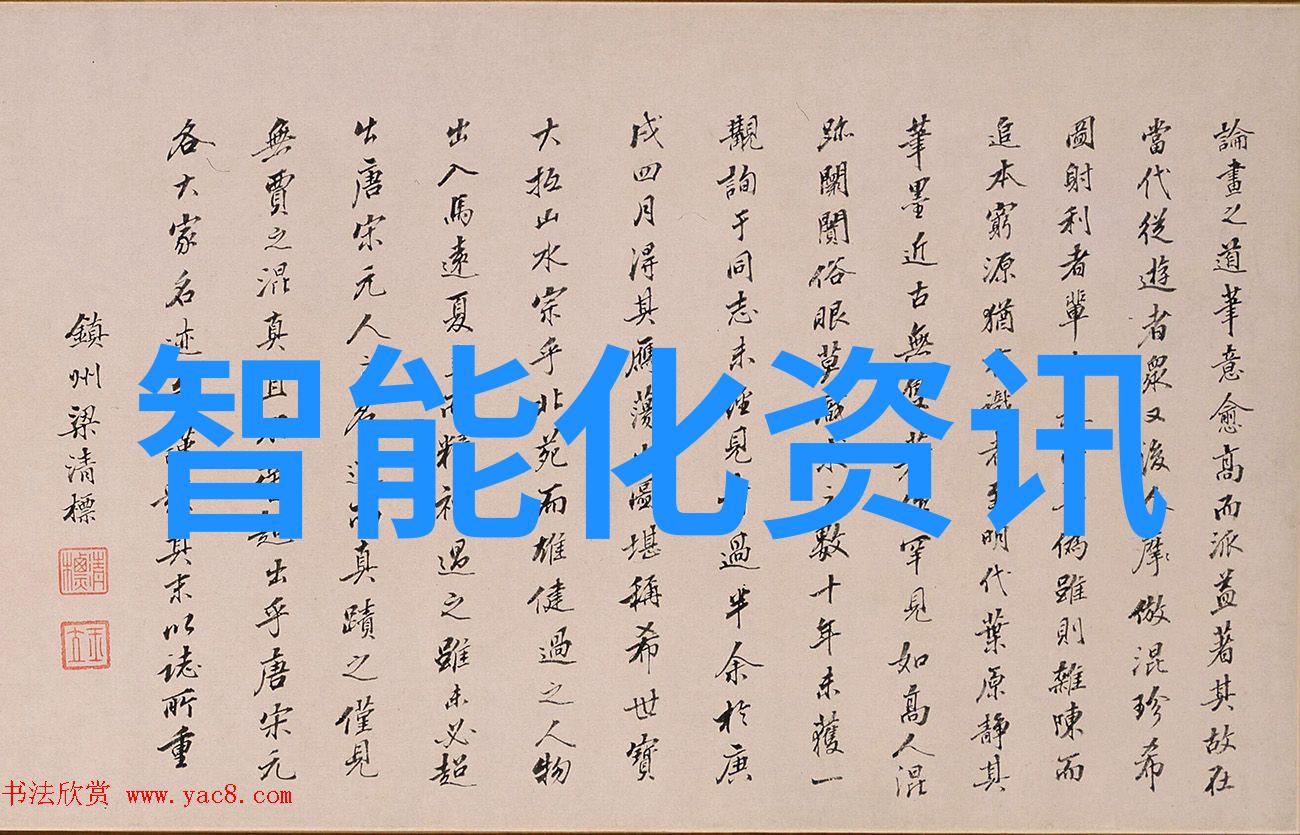 論畫之道筆意愈高而派益著其故在
當代從遊者眾又後人摩倣混珍希
圖射利者輩偽雖則雜陳而
追本窮源猶識者至明代葉原靜其
筆墨近古無雙罕見如高人混
跡闤闠俗眼莫識之數十年未獲一
觀詢于同志未經見過半余於庚
戌四月得其雁蕩山區堪稱希世寶
大抵山水宗乎北苑而雄健過之人物
出入馬遠夏而精神過之雖未必超
出唐宋元人之名而真蹟之僅見
無賈之混真且超出乎唐宋元
各大家名迹其末以誌所重
鎮州梁清標
清標
智能化资讯
书法欣赏 www.yac8.com